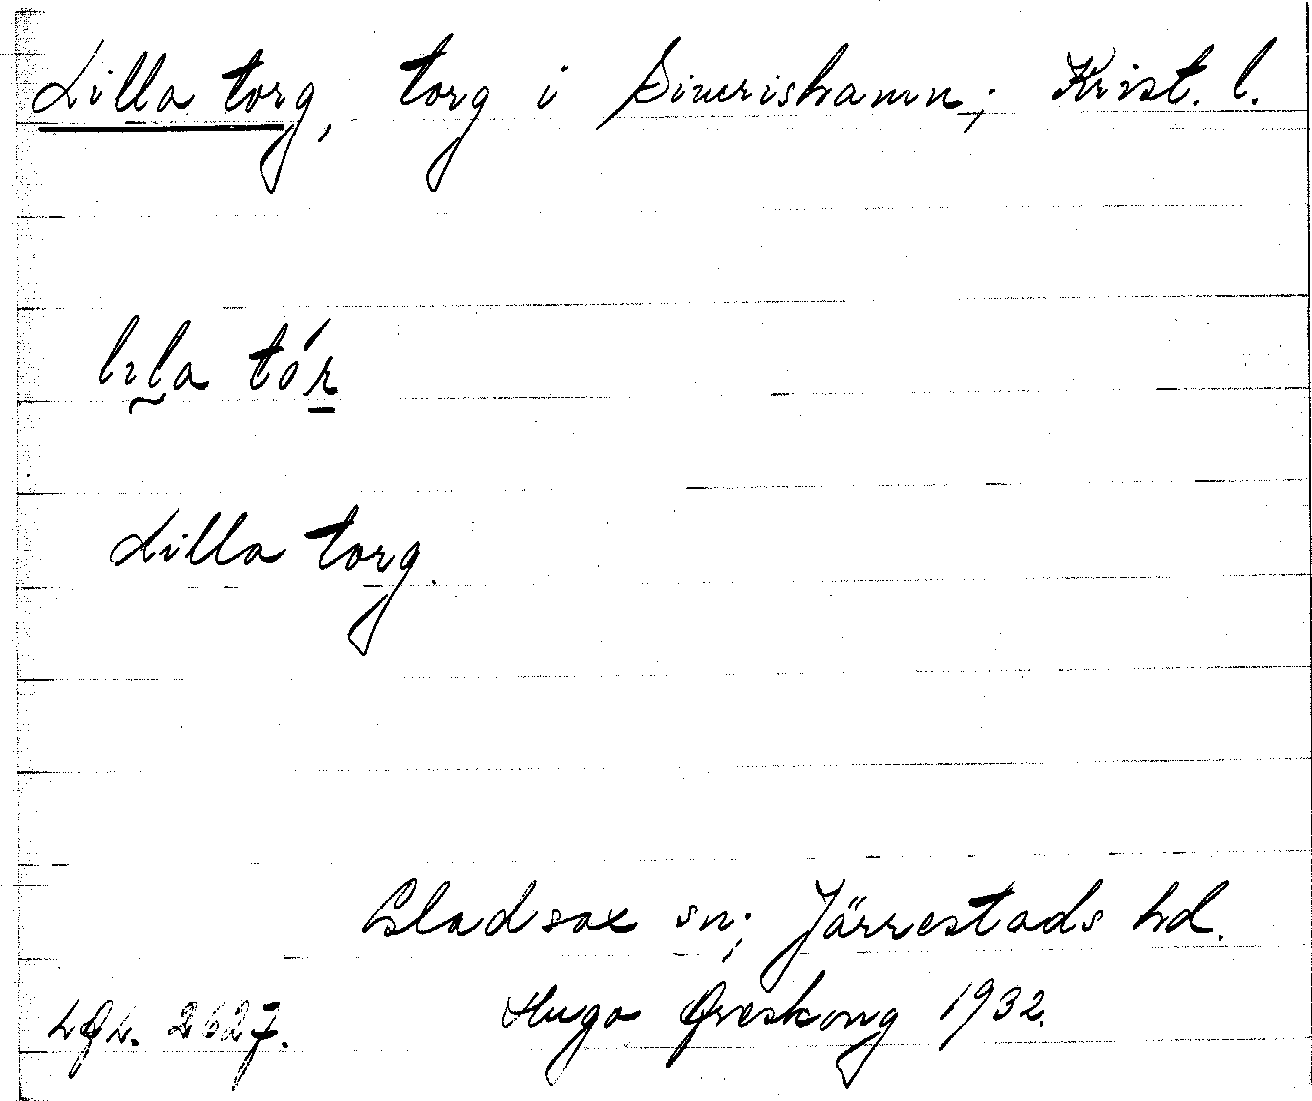 Lilla torg, torg i Simrishamn; Krist. l.
lıla tór
Lilla torg.
Gladsax sn; Järrestads hd.
Hugo Areskoug 1932.
2627.